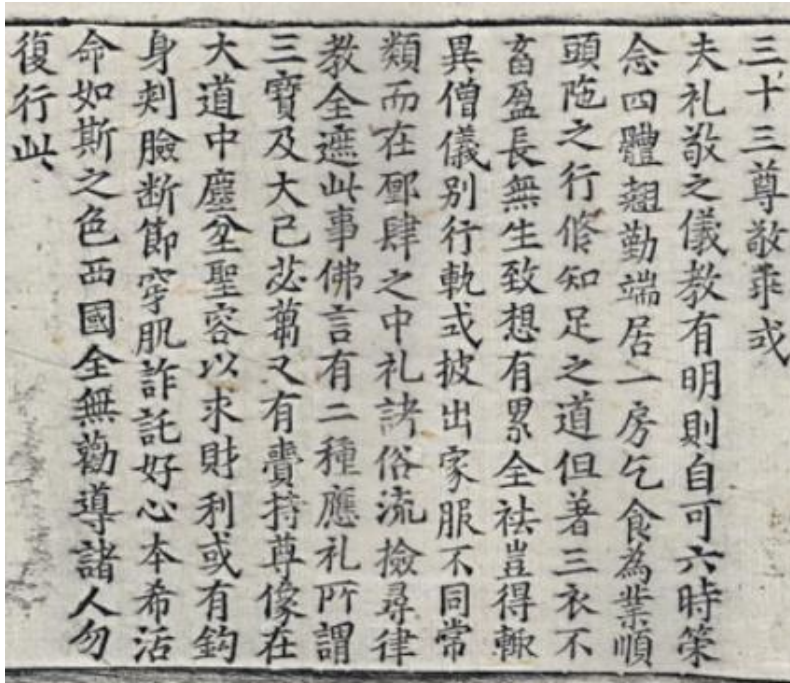 三十三尊敬乖或
夫礼敬之儀教有明則自可六時策
念四體翹勤端居一房乞食為業順
頭陁之行脩知足之道但著三衣不
畜盈長無生致想有累全袪豈得輙
異僧儀別行軌或披出家服不同常
類而在鄽肆之中礼諸俗流撿尋律
教全遮此事佛言有二種應礼所謂
三寶及大己苾蒭又有賷持尊像在
大道中塵坌聖容以求財利或有鈎
身刾臉断節穿肌詐託好心本希活
命如斯之色西國全無勸導諸人勿
復行此